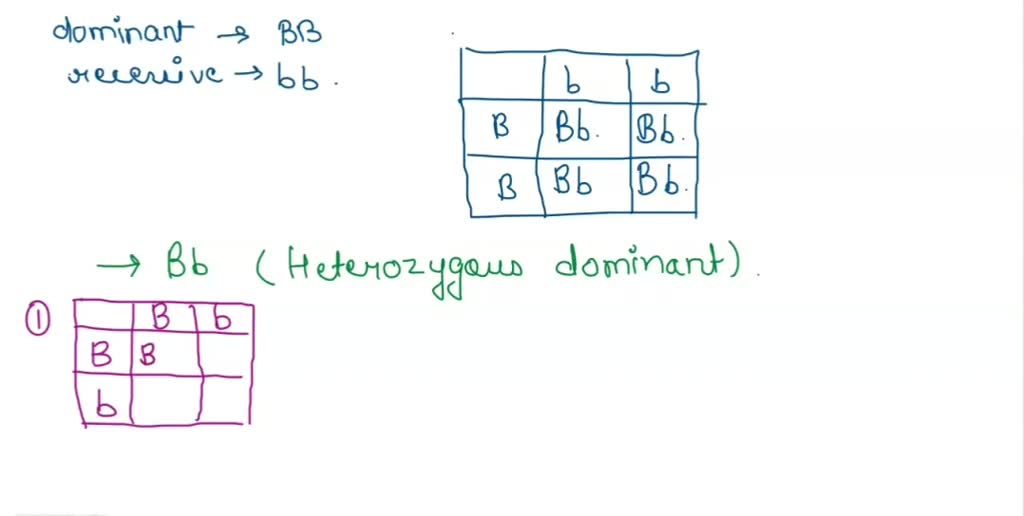 dominant → BB
recessive → bb.
b b
B Bb. Bb.
B Bb Bb.
→ Bb (Heterozygous dominant).
① B b
B B
b